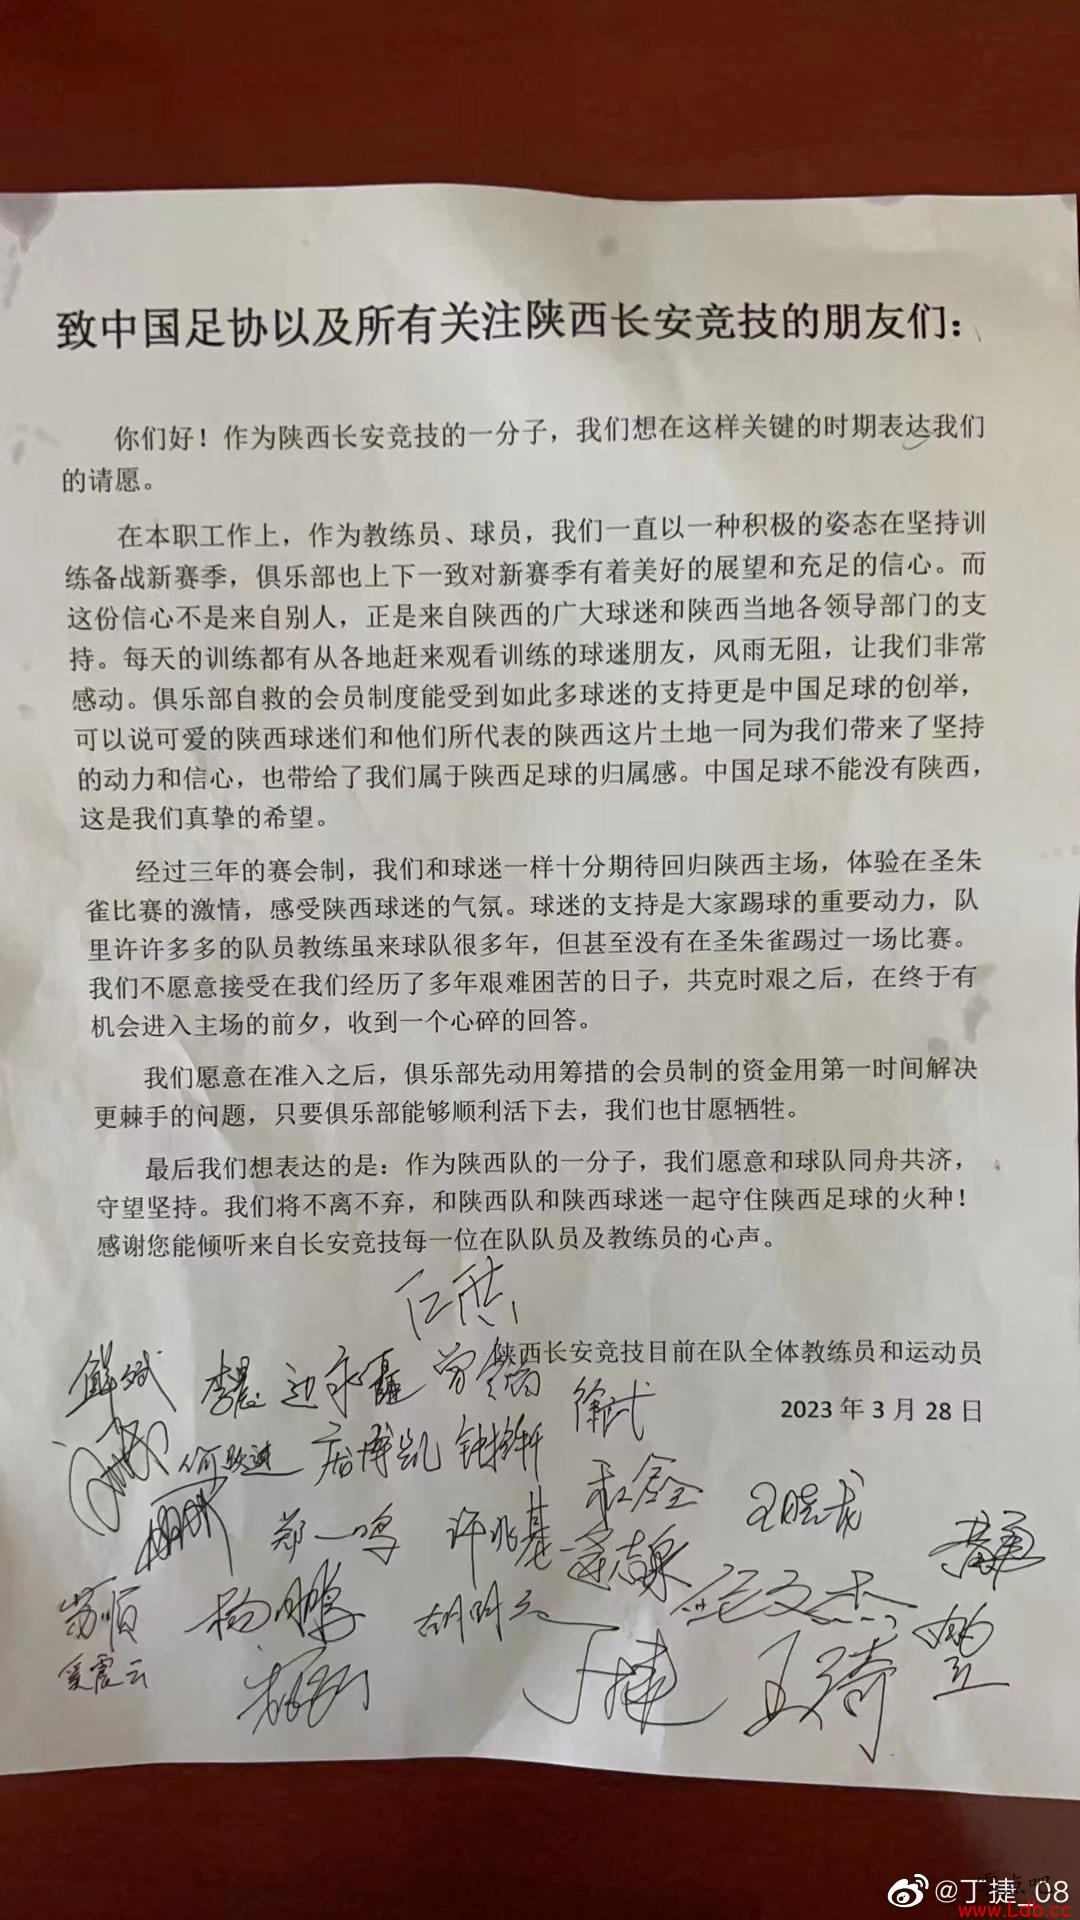 致中国足协以及所有关注陕西长安竞技的朋友们：
你们好！作为陕西长安竞技的一分子，我们想在这样关键的时期表达我们
的请愿。
在本职工作上，作为教练员、球员，我们一直以一种积极的姿态在坚持训
练备战新赛季，俱乐部也上下一致对新赛季有着美好的展望和充足的信心。而
这份信心不是来自别人，正是来自陕西的广大球迷和陕西当地各领导部门的支
持。每天的训练都有从各地赶来观看训练的球迷朋友，风雨无阻，让我们非常
感动。俱乐部自救的会员制度能受到如此多球迷的支持更是中国足球的创举，
可以说可爱的陕西球迷们和他们所代表的陕西这片土地一同为我们带来了坚持
的动力和信心，也带给了我们属于陕西足球的归属感。中国足球不能没有陕西，
这是我们真挚的希望。
经过三年的赛会制，我们和球迷一样十分期待回归陕西主场，体验在圣朱
雀比赛的激情，感受陕西球迷的气氛。球迷的支持是大家踢球的重要动力，队
里许许多多的队员教练虽来球队很多年，但甚至没有在圣朱雀踢过一场比赛。
我们不愿意接受在我们经历了多年艰难困苦的日子，共克时艰之后，在终于有
机会进入主场的前夕，收到一个心碎的回答。
我们愿意在准入之后，俱乐部先动用筹措的会员制的资金用第一时间解决
更棘手的问题，只要俱乐部能够顺利活下去，我们也甘愿牺牲。
最后我们想表达的是：作为陕西队的一分子，我们愿意和球队同舟共济，
守望坚持。我们将不离不弃，和陕西队和陕西球迷一起守住陕西足球的火种！
感谢您能倾听来自长安竞技每一位在队队员及教练员的心声。
陕西长安竞技目前在队全体教练员和运动员
李晨
徐武
2023 年 3 月 28 日
何跃进
王晓龙
郑一鸣 许兆基
苏顺 杨鹏 胡明天
奚震云 丁捷 王琦
@丁捷_08
www.Ldb.cc